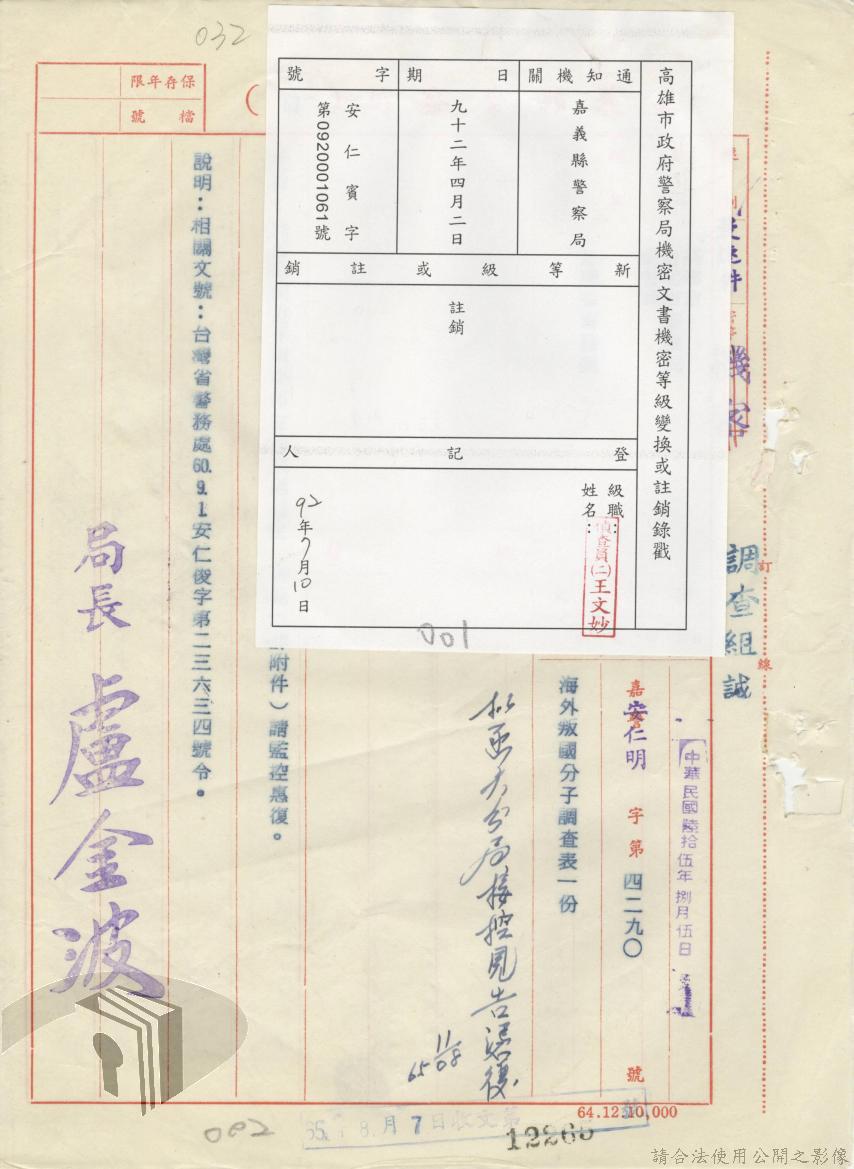 032
高雄市政府警察局機密文書機密等級變換或註銷錄戳
通知機關
嘉義縣警察局
日期
九十二年四月二日
字號
安仁賓字
第0920001061號
新等級或註銷
註銷
登記人
級職：
姓名：
偵查員(二)王文妙
92年7月10日
001
保存年限
檔號
機密
調查組
誠
訂
線
中華民國陸拾伍年捌月伍日
嘉警
安仁明
字第
四二九〇
號
海外叛國分子調查表一份
附件）請監控惠復。
說明：相關文號：台灣省警務處60.9.1.安仁俊字第二三六三四號令。
局長 盧金波
65 11/08
64.12.10,000
65. 8.月7日收文第
12265
002
請合法使用公開之影像